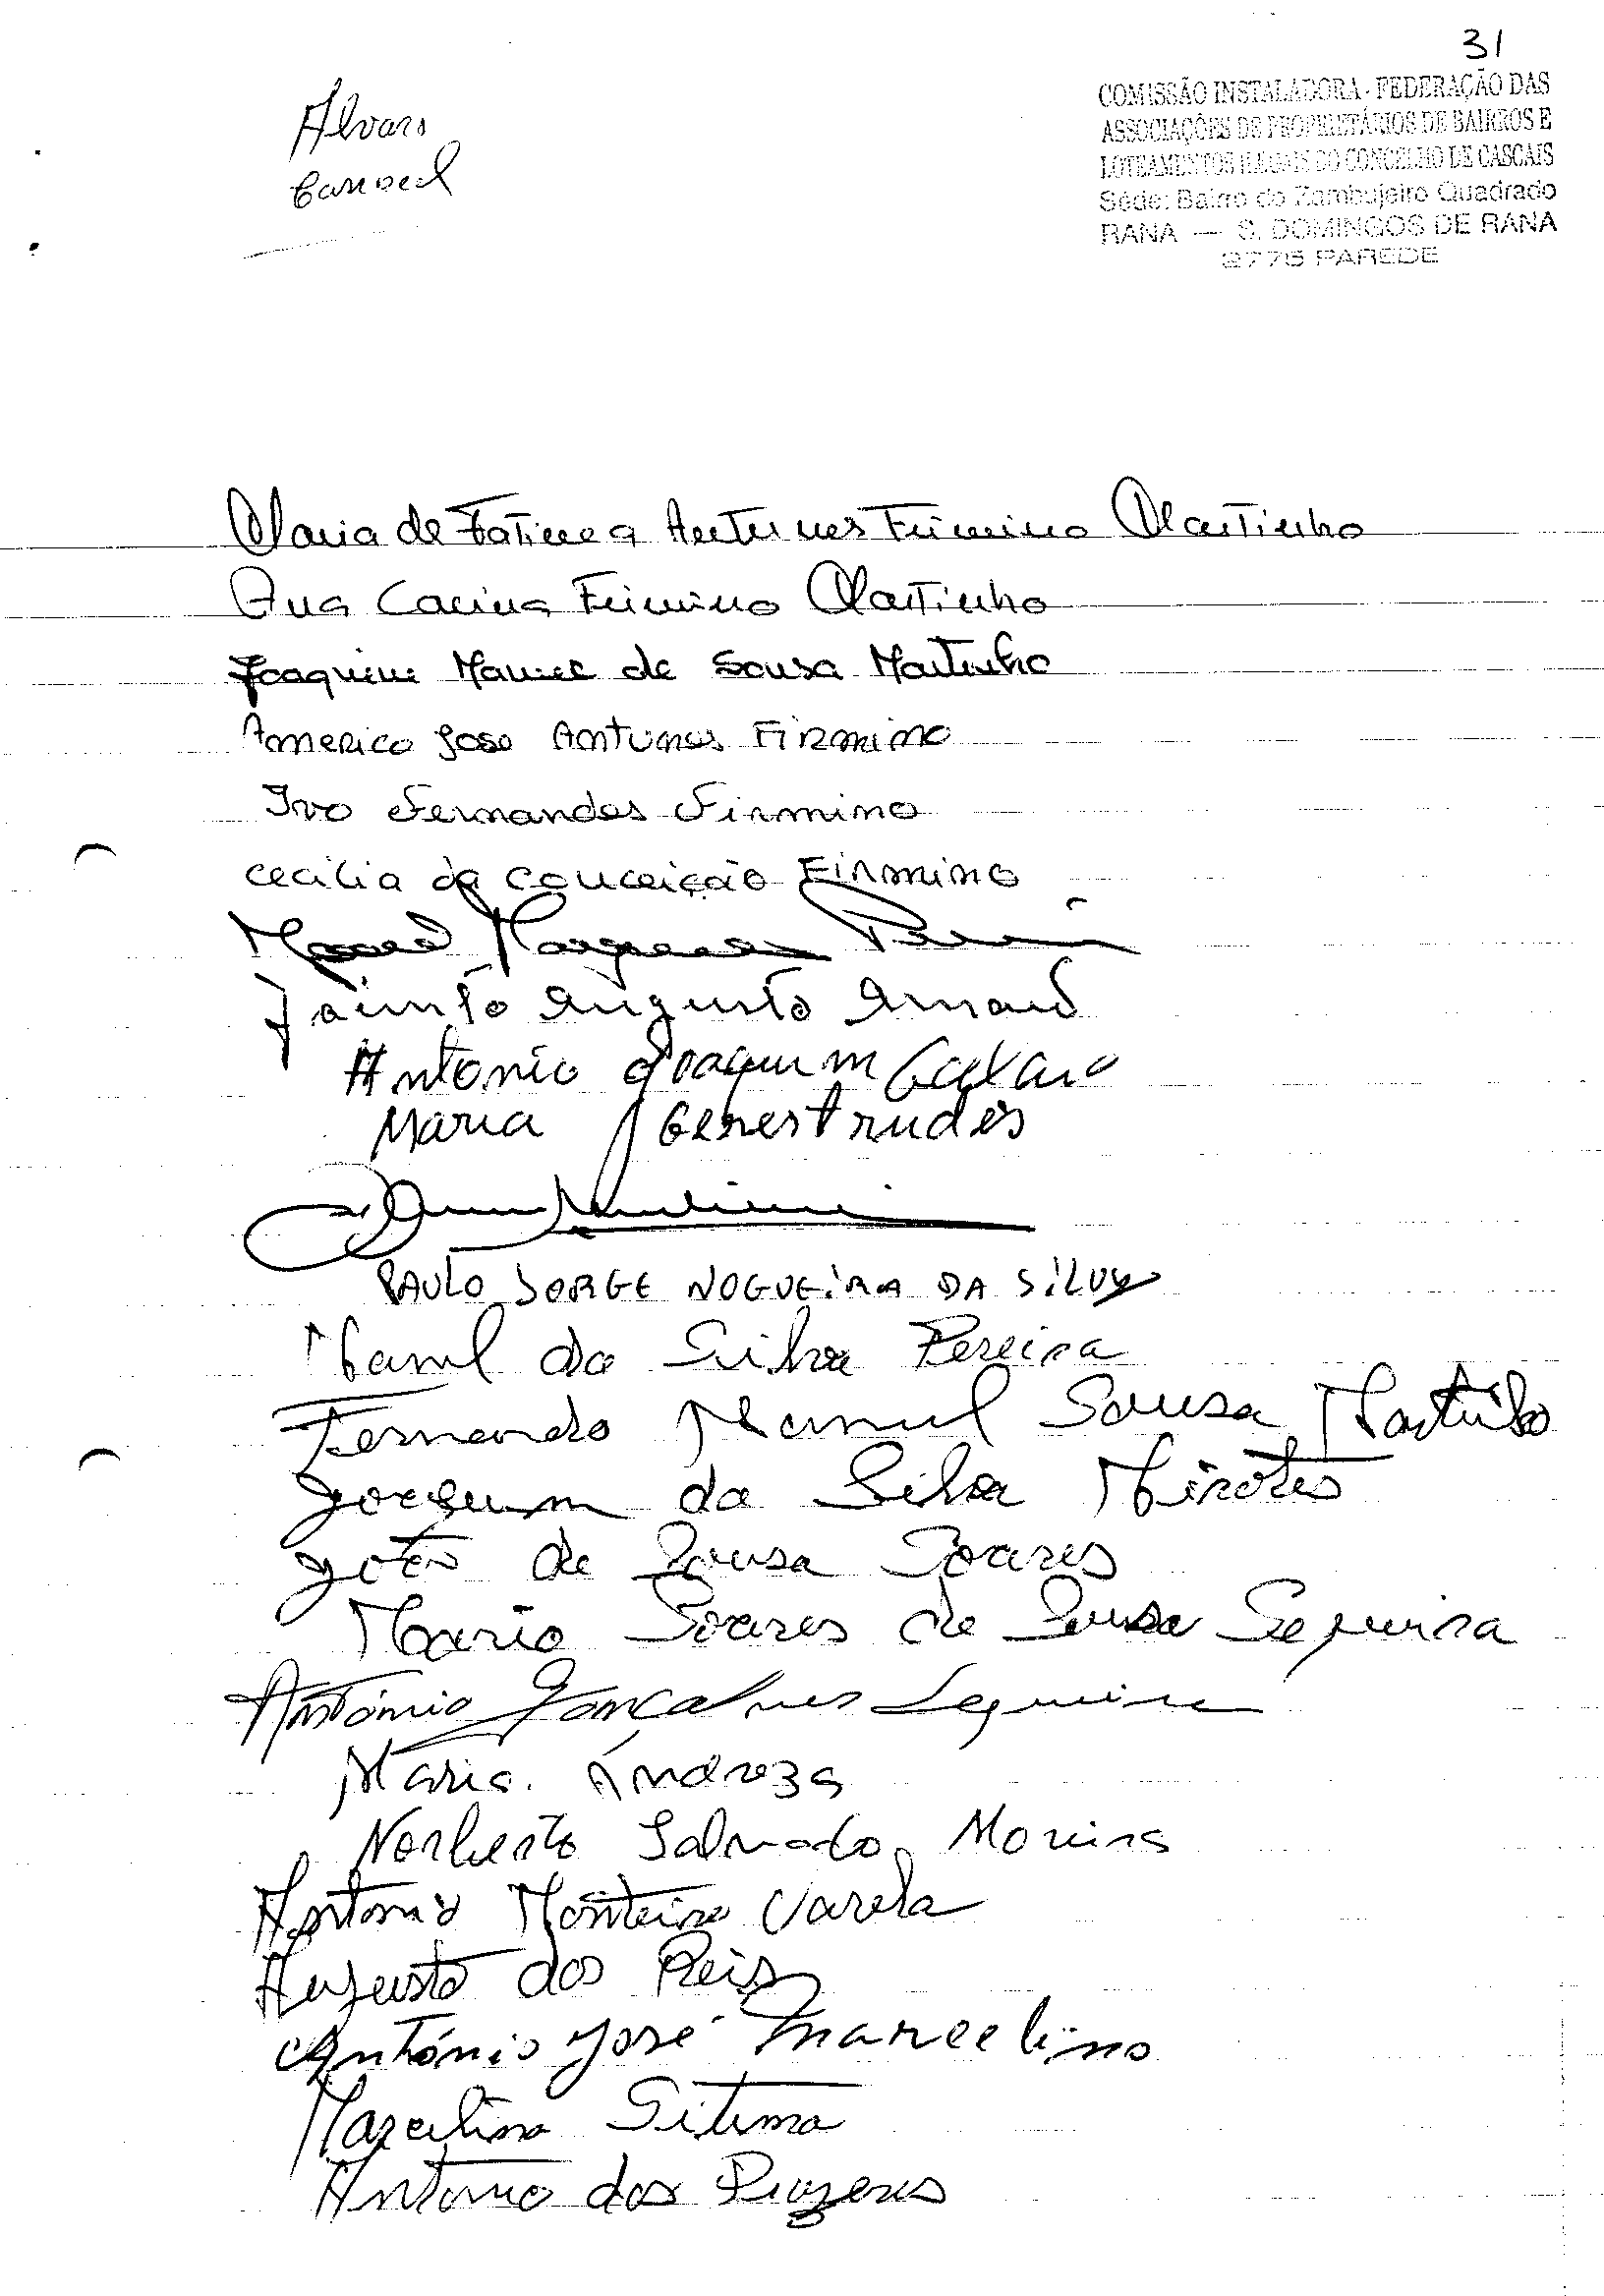 31
Alvaro
COMISSÃO INSTALADORA - FEDERAÇÃO DAS
ASSOCIAÇÕES DE PROPRIETÁRIOS DE BAIRROS E
LOTEAMENTOS ILEGAIS DO CONCELHO DE CASCAIS
Séde: Bairro do Zambujeiro Quadrado
RANA — S. DOMINGOS DE RANA
2775 PAREDE
Maria de Fatima Antunes Firmino Martinho
Ana Carina Firmino Martinho
Joaquim Manuel de Sousa Martinho
Americo José Antunes Firmino
Ivo Fernandes Firmino
Cecilia da Conceição Firmino
Manuel Marques Pereira
Jacinto Augusto
Antonio Joaquim
Maria Generstrudes
PAULO JORGE NOGUEIRA DA SILVA
Manuel da Silva Pereira
Fernando Manuel Sousa Martinho
Joaquim da Silva
João de Sousa Soares
Maria Soares de Sousa Sequeira
António Gonçalves Sequeira
Maria Andreza
Norberto Salvado Moreira
Antonio Monteiro Varela
Augusto dos Reis
António José Marcelino
Marcelina
Antonio dos Prazeres